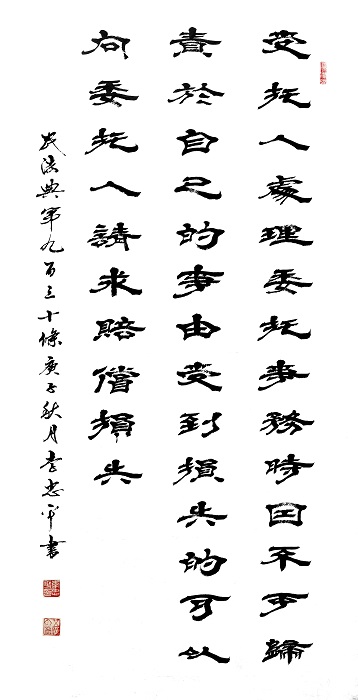 受托人處理委托事務時因不可歸
責於自己的事由受到損失的可以
向委托人請求賠償損失
民法典第九百三十條庚子秋月李忠平書